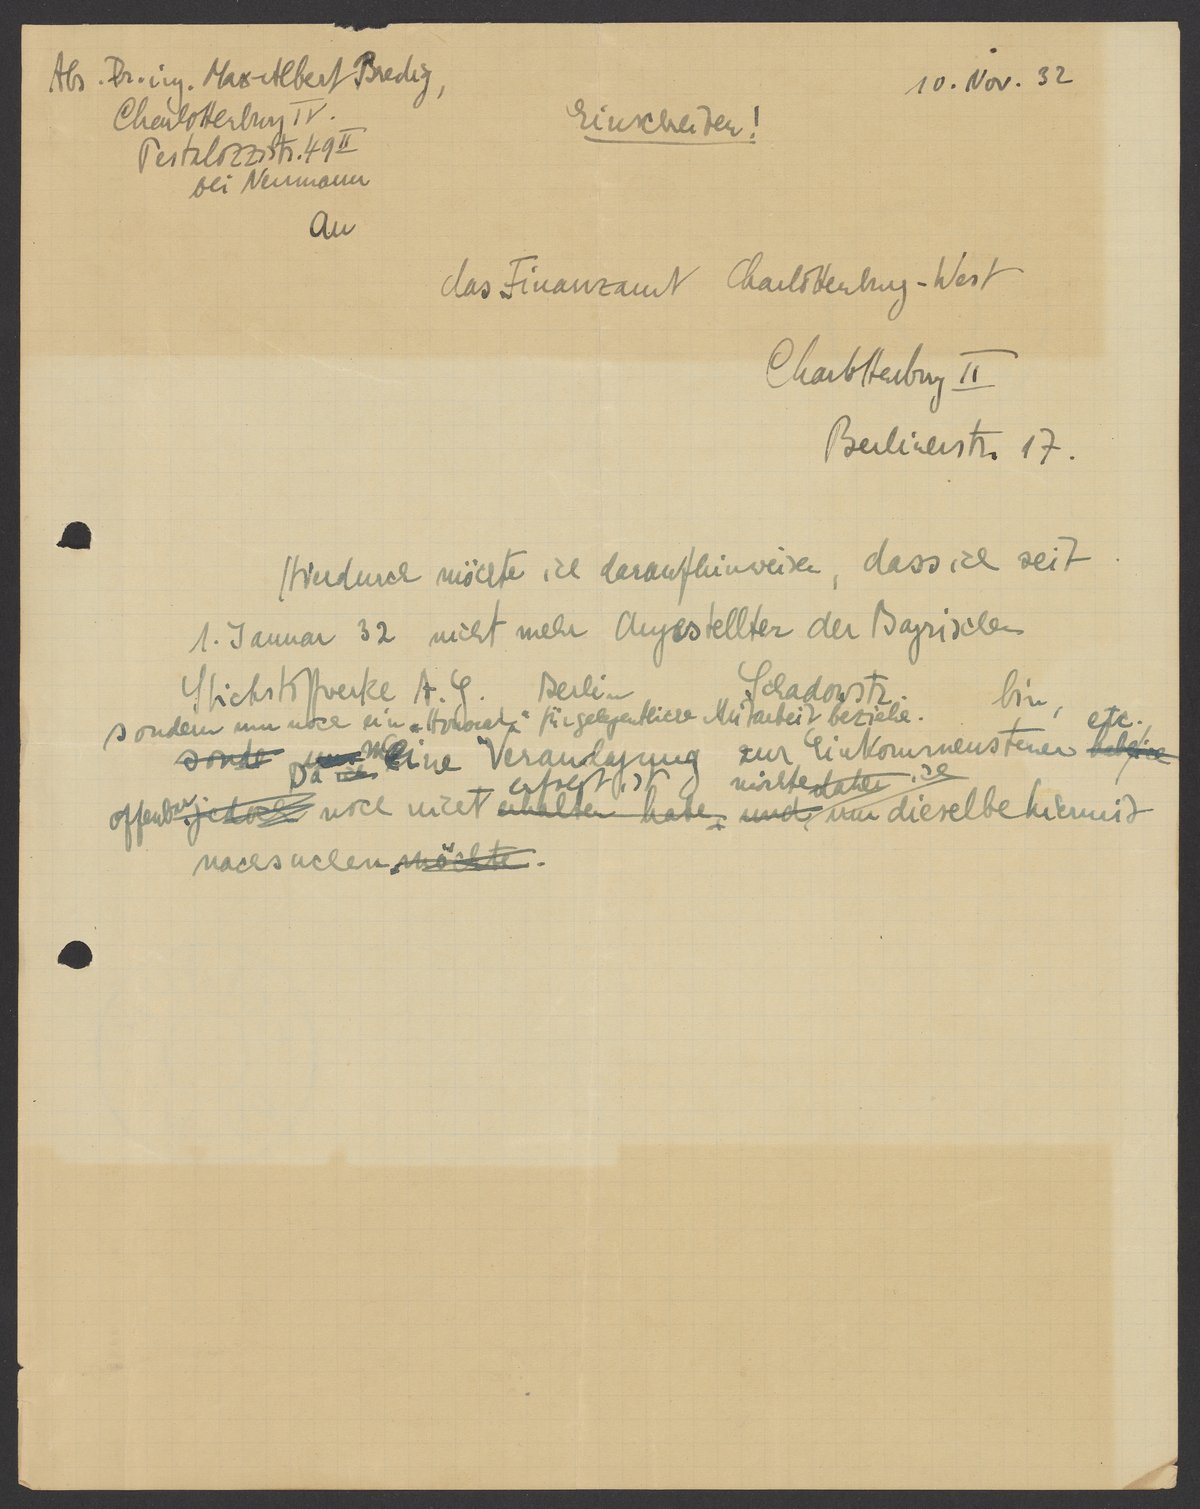 Abs. Dr.-ing. Max-Albert Bredig,
10. Nov. 32
Charlottenburg IV.
Einschreiben!
Pestalozzistr. 49 II
bei Neumann
An
das Finanzamt Charlottenburg-West
Charlottenburg II
Berlinerstr. 17.
Hierdurch möchte ich daraufhinweisen, dass ich seit
1. Januar 32 nicht mehr Angestellter der Bayrischen
Stickstoffwerke A.G. Berlin Schadowstr. bin,
sondern nur noch ein "Honorar" für gelegentliche Mitarbeit beziehe.
sonde Da eine Veranlagung zur Einkommensteuer etc.
offenbar jedoch noch nicht erhalten habe, erfolgt ist und, möchte daher ich um dieselbe hiermit
nachsuchen möchte.